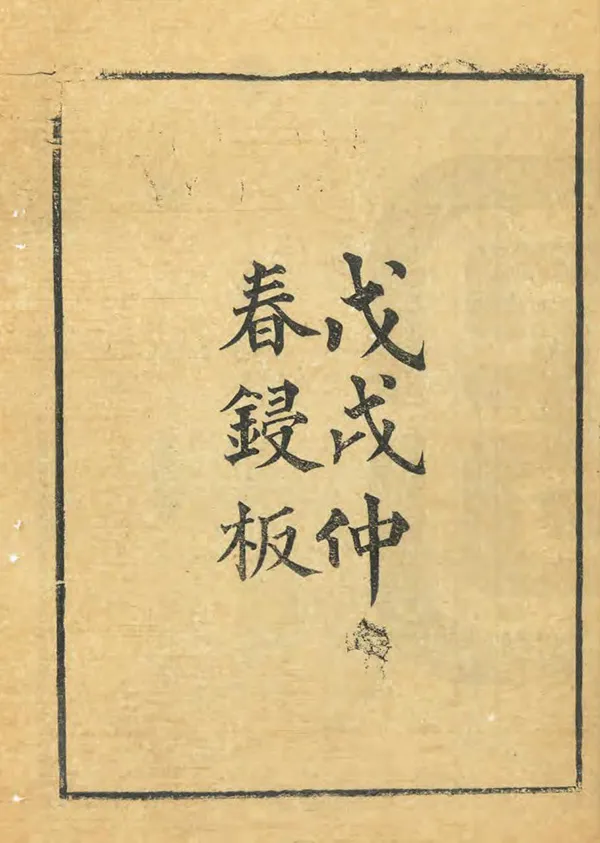 戊戌仲
春鋟板